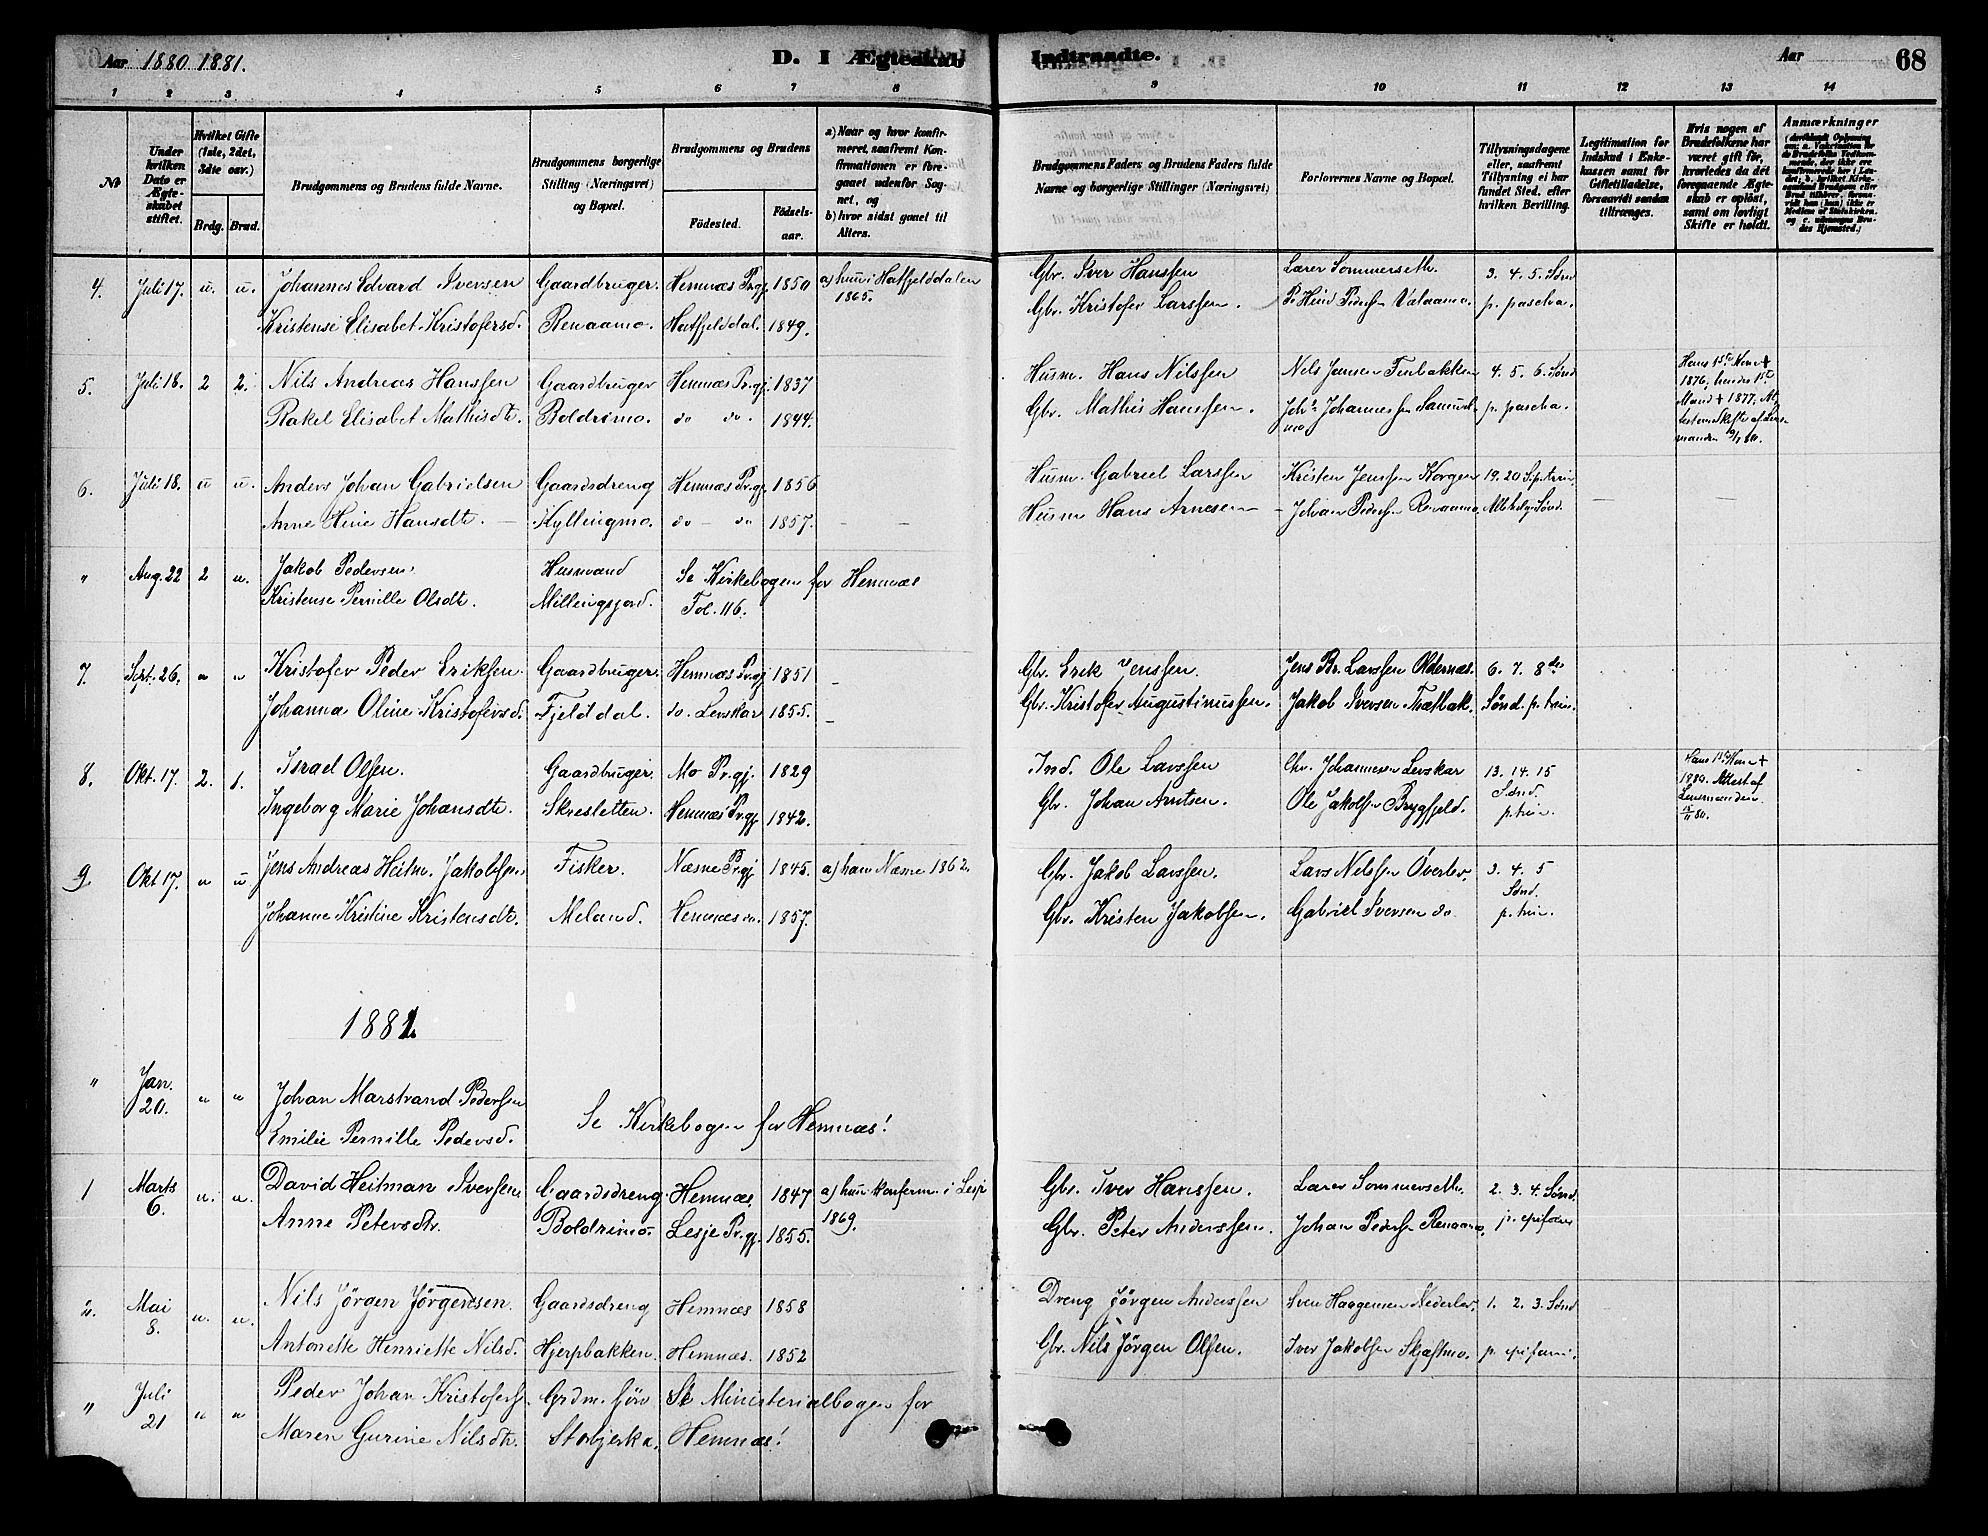 Aar 1880 1881.
D. I Ægteskab Indtraadte.
Aar
68
1 2 3 4 5 6 7 8 9 10 11 12 13 14
№
Under hvilken Dato er Ægteskabet stiftet.
Hvilket Gifte (1ste, 2det, 3die osv.)
Brdg. Brud.
Brudgommens og Brudens fulde Navne.
Brudgommens borgerlige Stilling (Næringsvei) og Bopæl.
Brudgommens og Brudens
Fødested.
Fødselsaar.
a) Naar og hvor konfirmeret, saafremt Konfirmationen er foregaaet udenfor Sognet, og
b) hvor sidst gaaet til Alters.
Brudgommens Faders og Brudens Faders fulde Navne og borgerlige Stillinger (Næringsvei)
Forlovernes Navne og Bopæl.
Tillysningsdagene eller, saafremt Tillysning ei har fundet Sted, efter hvilken Bevilling.
Legitimation for Indskud i Enkekassen samt for Giftetilladelse, forsaavidt saadan tiltrænges.
Hvis nogen af Brudefolkene har været gift før, hvorledes da det foregaaende Ægteskab er opløst, samt om lovligt Skifte er holdt.
Anmærkninger
4. Juli 17. u. u. Johannes Edvard Iversen Gaardbruger. Hemnæs Prgj. 1850 a) hun i Hatfjelddalen Gbr. Iver Hanssen Lærer Sommerseth. 3. 4. 5. Sønd
1865.
Kristense Elisabet Kristofersd. Renaamo. Hatfjelddal. 1849. Gbr. Kristofer Larssen. Pedersen p. pascha.
5. Juli 18. 2 2. Nils Andreas Hanssen Gaardbruger Hemnæs Prgj. 1837 Husm. Hans Nilssen Nils Jensen Finbakken 4. 5. 6. Sønd
Rakel Elisabet Mathisdt. Boldrimo. do do. 1844. Gbr. Mathis Hanssen. Johannessen p. pascha.
Hans 1ste Kone †
1876, hendes 1ste
Mand † 1877.
6. Juli 18. u u. Anders Johan Gabrielsen Gaardsdreng Hemnæs Prgj. 1856 Husm. Gabriel Larssen Kristen Jenssen Korgen 19. 20 S. p. trin.
Anne Hansdt. – Kyllingmo. do – do 1857. – – Husm Hans Arnesen – Johan Pedersen Renaamo, Sønd.
" Aug. 22 2 u. Jakob Pedersen. Husmand Se Kirkebogen for Hemnæs
Kristense Pernille Olsdt. Millingsjord. Fol. 116.
7. Sept. 26. " " Kristofer Peder Eriksen Gaardbruger. Hemnæs Prgj 1851 – Gbr. Erik Jenssen. Jens Br. Larssen Oldernæs. 6. 7. 8de
Johanna Oline Kristofersd. Fjelddal. do. Levskar 1855. – Gbr. Kristofer Augustinussen. Jakob Iversen Sønd. p. trin.
8. Okt. 17. 2. 1. Israel Olsen. Gaardbruger. Mo Prgj. 1829 Ind. Ole Larssen Chr. Johannesen Levskar 13. 14. 15
Sønd.
Ingeborg Marie Johansdt. Skresletten. Hemnæs Prgj. 1842. Gbr. Johan Arntsen. Ole Jakobsen Bryggfjeld. p. trin.
Hans 1ste Kone †
1880. Attest af
Lensmanden
9. Okt 17. " u Jens Andreas Heitm. Jakobsen Fisker. Næsne Prgj 1845. a) han Næsne 1862. Gbr. Jakob Larssen. Lars Nilssen Øverlev. 3. 4. 5
Sønd.
Johanne Kristine Kristensdt. Meland. Hemnæs do. 1857. Gbr. Kristen Jakobsen. Gabriel Iversen do p. trin.
1881.
" Jan. 20. " " Johan Marstrand Pedersen
Se Kirkebogen for Hemnæs!
Emilie Pernille Pedersd.
1 Marts 6. u. u. David Heitman Iversen Gaardsdreng. Hemnæs. 1847 a) hun konferm. i Lesje Gbr. Iver Hanssen. Lærer Sommerseth. 2. 3. 4. Sønd.
1869.
Anne Petersdtr. Boldrimo. Lesje Prgj. 1855. Gbr. Peter Anderssen. Johan Pedersen Renaamo. p. epifani
2. Mai 8. u. u. Nils Jørgen Jørgensen. Gaardsdreng Hemnæs 1858 Dreng Jørgen Anderssen Sven Haagensen Nederlev. 1. 2. 3. Sønd
Antonette Henriette Nilsd. Hjerpbakken. Hemnæs. 1852 Gbr. Nils Jørgen Olsen. Iver Jakobsen Skjaftmo. p. epifani.
" Juli 21 " " Peder Johan Kristofers. Grdm. Se Ministerialbogen for
Maren Gurine Nilsdt. Storbjerka. Hemnæs!